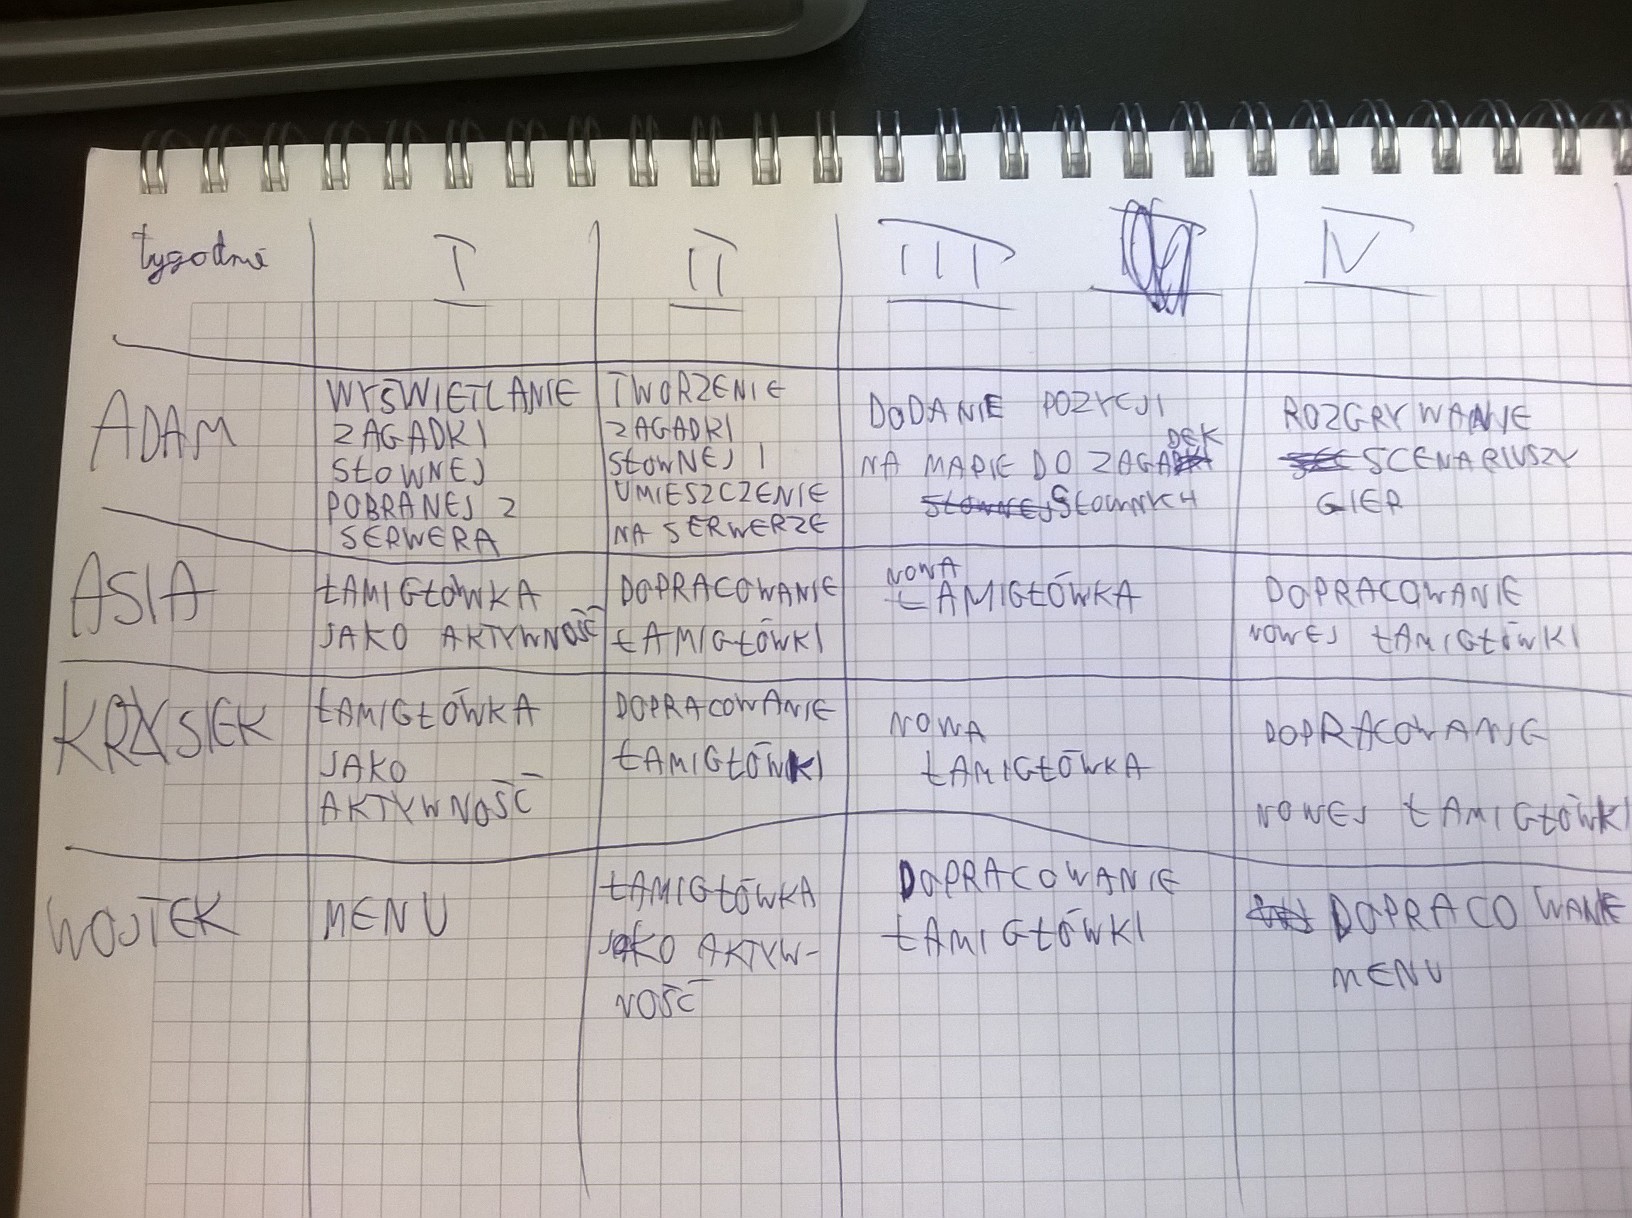 tygodnie I II III IV
ADAM
WYŚWIETLANIE
ZAGADKI
SŁOWNEJ
POBRANEJ Z
SERWERA
TWORZENIE
ZAGADKI
SŁOWNEJ I
UMIESZCZENIE
NA SERWERZE
DODANIE POZYCJI
NA MAPIE DO ZAGADEK
SŁOWNYCH
ROZGRYWANIE
SCENARIUSZY
GIER
ASIA
ŁAMIGŁÓWKA
JAKO AKTYWNOŚĆ
DOPRACOWANIE
ŁAMIGŁÓWKI
NOWA
ŁAMIGŁÓWKA
DOPRACOWANIE
NOWEJ ŁAMIGŁÓWKI
KRZYSIEK
ŁAMIGŁÓWKA
JAKO
AKTYWNOŚĆ
DOPRACOWANIE
ŁAMIGŁÓWKI
NOWA
ŁAMIGŁÓWKA
DOPRACOWANIE
NOWEJ ŁAMIGŁÓWKI
WOJTEK
MENU
ŁAMIGŁÓWKA
JAKO AKTYW-
NOŚĆ
DOPRACOWANIE
ŁAMIGŁÓWKI
DOPRACOWANIE
MENU